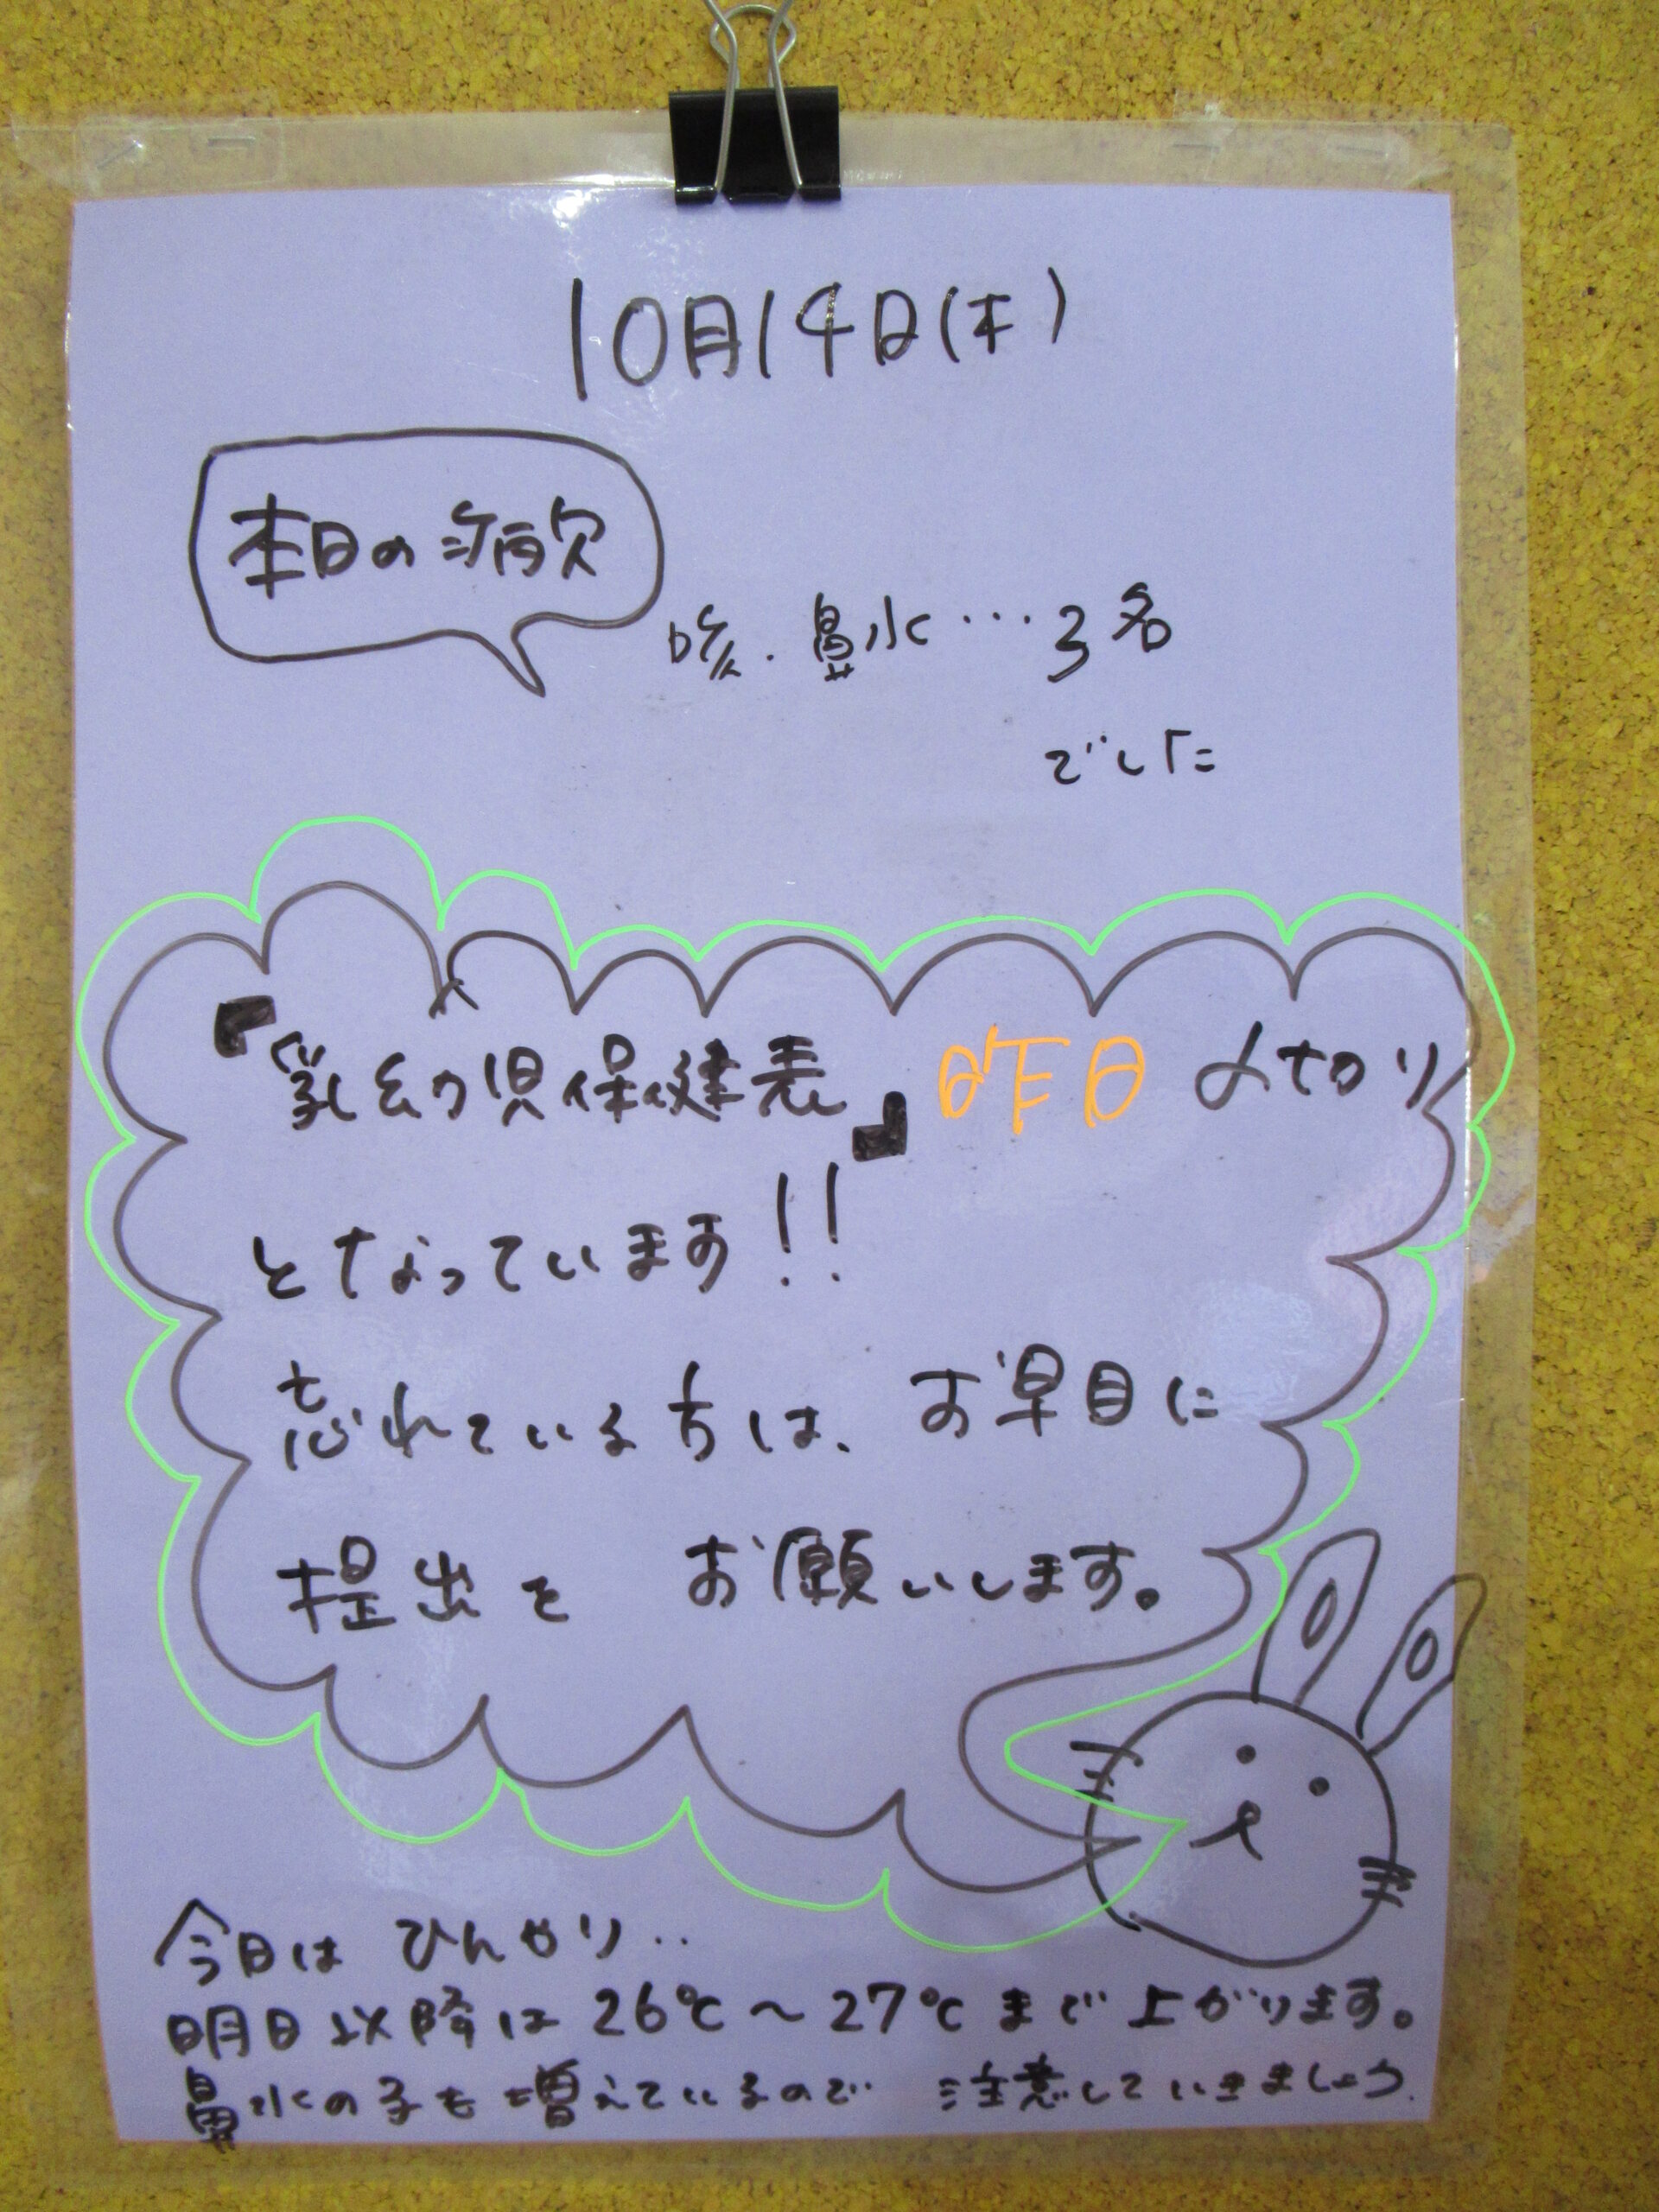 10月14日(木)
本日の病欠
咳・鼻水…3名
でした
『乳幼児保健表』昨日〆切り
となっています!!
忘れている方は、お早目に
提出を お願いします。
今日は ひんやり..
明日以降は 26℃～27℃まで上がります。
鼻水の子も増えているので 注意していきましょう.